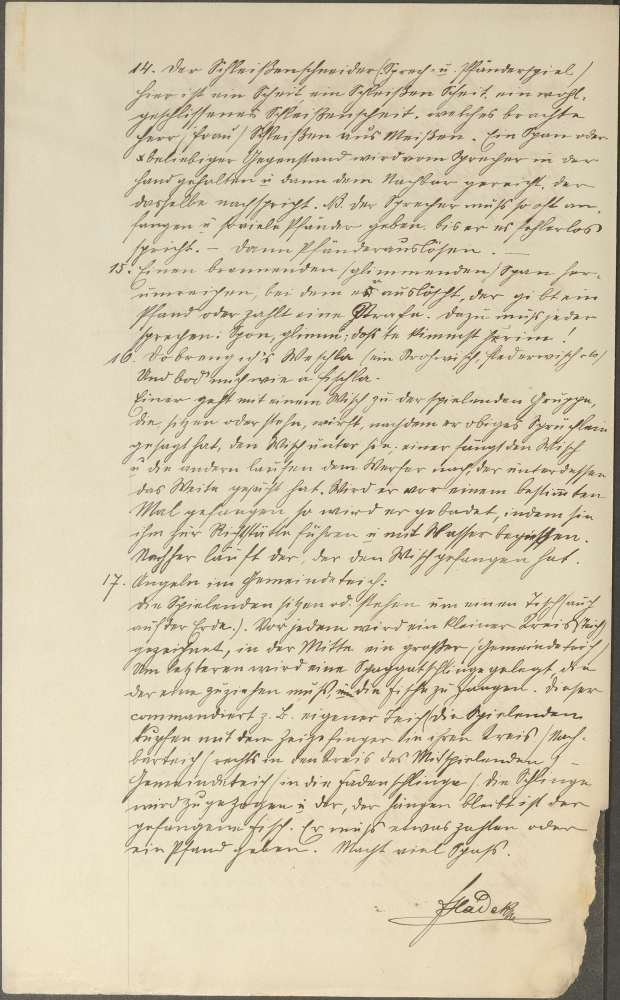 14. Der Schleißenschneider (Sprech- u. Pfänderspiel)
Hier ist ein Scheit ein Schleißen Scheit, ein wohl-
geschlissenes Schleißenscheit, welches brachte
Herr /Frau/ Schleißen aus Meißen. Ein Span oder
beliebiger Gegenstand wird vom Sprecher in der
Hand gehalten u. dann dem Nachbar gereicht, der
dasselbe nachspricht. N. der Sprecher muß so oft an-
fangen u. soviele Pfänder geben, bis er es fehlerlos
spricht. – Dann Pfänderauslösen. –
15. Einen brennenden /glimmenden/ Span her-
umreichen, bei dem er auslöscht, der gibt ein
Pfand oder zahlt eine Strafe. Dazu muß jeder
sprechen: Spon, glimm; doß te kimmst herim!
16. Do breng ich's Waschla (ein Strohwisch, Federwisch etc)
Und bod' mich wie a Fischla.
Einer geht mit einem Wisch zu der spielenden Gruppe,
die sitzen oder stehn, wirft, nachdem er obiges Sprüchlein
gesagt hat, den Wisch unter sie. einer fängt den Wisch
u. die andern laufen dem Werfer nach, der unterdessen
das Weite gesucht hat. Wird er vor einem bestimmten
Mal gefangen so wird er gebadet, indem sie
ihn zur Richtstätte führen u. mit Wasser begießen.
Nachher läuft der, der den Wisch gefangen hat.
17. Angeln im Gemeindeteich:
Die Spielenden sitzen od. stehen um einen Tisch (auch
auf der Erde.). Vor jedem wird ein kleiner Kreis /Teich/
gezeichnet, in der Mitte ein großer /Gemeindeteich/
Um letzteren wird eine Spagatschlinge gelegt, die
der eine zuziehen muß, um die Fische zu fangen. Dieser
commandiert z. B. eigener Teich /die Spielenden
tupfen mit dem Zeigefinger in ihren Kreis / Nach-
barteich / rechts in den Kreis des Mitspielenden / –
Gemeindeteich / in die Fadenschlinge / die Schlinge
wird zugezogen u. der, der hängen bleibt ist der
gefangene Fisch. Er muß etwas zahlen oder
ein Pfand geben. Macht viel Spaß.
Hladek